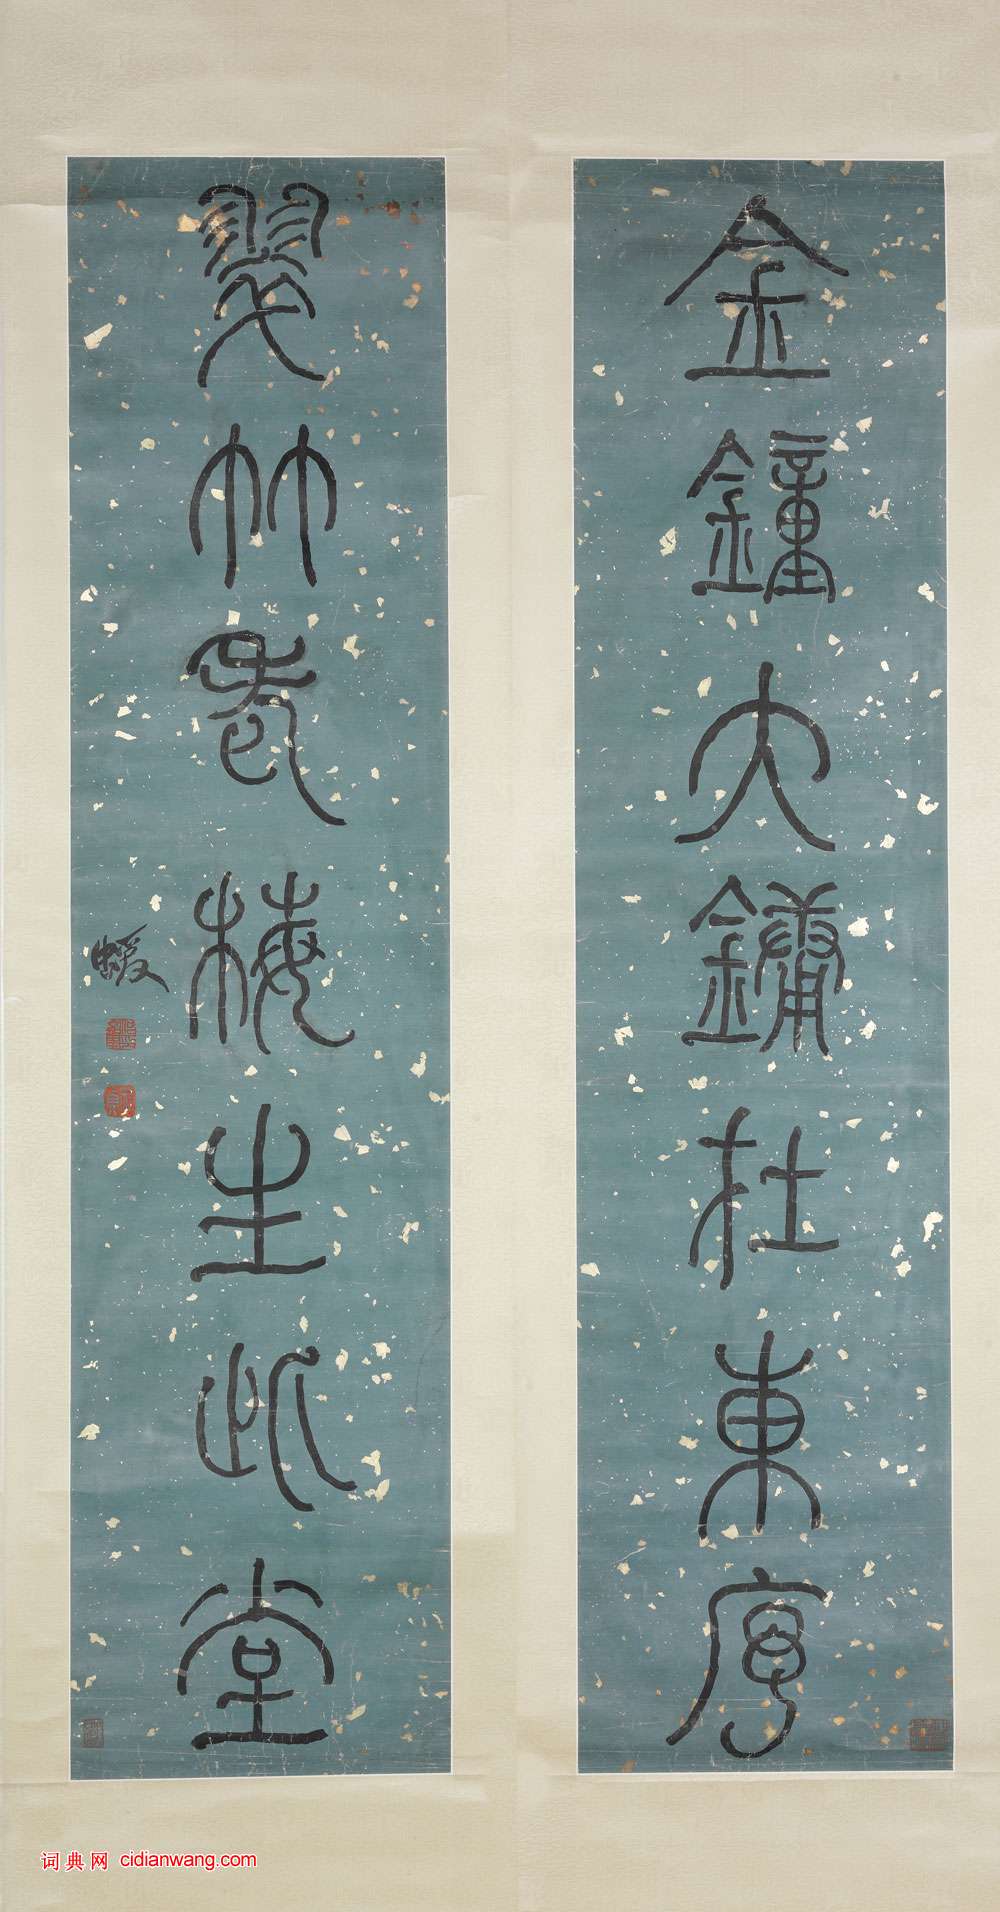 金鐘大鏞在東序
翠竹老梅生此堂
蝯
子貞
词典网 cidianwang.com